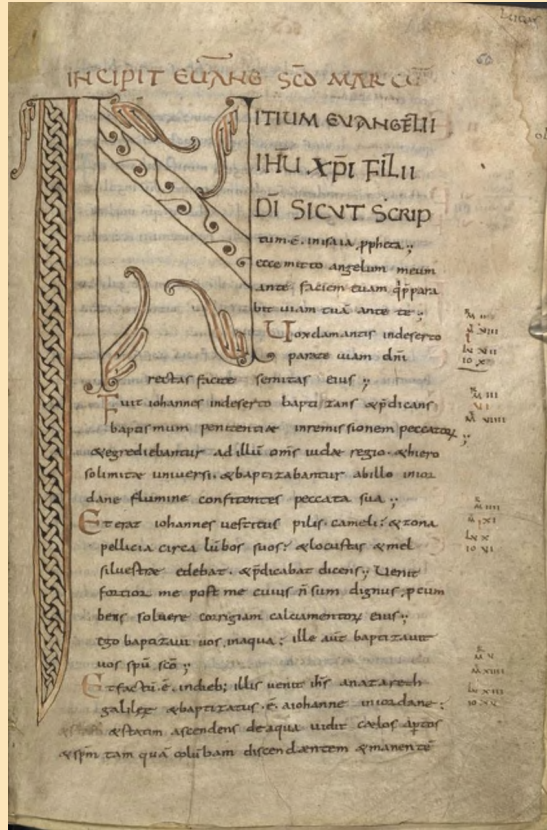 INCIPIT EUANG SCD MARCU
INITIUM EUANGELII
IHU XPI FILII
DI SICUT SCRIP
tum ē. in isaia ppheta;;
ecce mitto angelum meum
ante faciem tuam q p̄para
bit uiam tuā ante te;
Uox clamantis indeserto
parate uiam dn̄i
rectas facite semitas eius;;
Fuit iohannes indeserto baptizans &p̄dicans
baptismum penitentiae inremissionem peccatoꝝ;
&egrediebantur ad illū om̄s iudae regio. &hiero
solimitae uniuersi. &baptizabantur abillo inior
dane flumine confitentes peccata sua;;
Et erat iohannes uestitus pilis cameli: &zona
pellicia circa lūbos suos: &locustas &mel
siluestrae edebat. &p̄dicabat dicens;; Uenit
fortior me post me cuius n̄ sum dignus pcum
bens soluere corrigiam calciamentoꝝ eius;;
ego baptizaui uos inaqua: ille aūt baptizauit
uos spū scō;;
Et factū.ē. indieb; illis uenit ihs anazareth
galileę &baptizatus.ē. aiohanne iniordane:
&statim ascendens deaqua uidit caelos aptos
&spm tam quā colūbam discendaentem &manentē